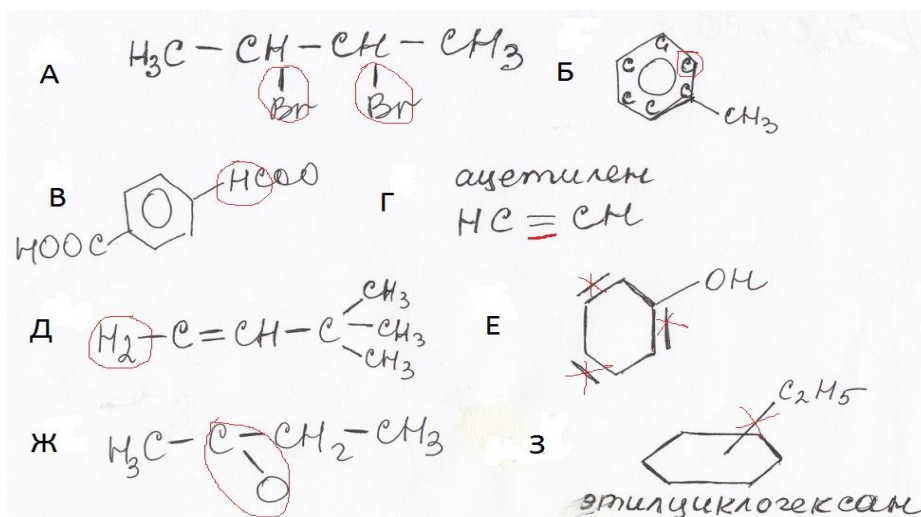 А
H₃C – CH – CH – CH₃
Br Br
Б
C C C C C C
CH₃
В
HCOO
HOOC
Г
ацетилен
HC ≡ CH
Д
H₂ – C = CH – C – CH₃
CH₃
CH₃
Е
OH
Ж
H₃C – C – CH₂ – CH₃
O
З
C₂H₅
этилциклогексан